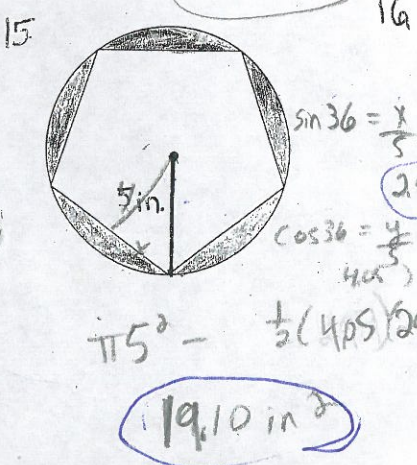 15
16
sin 36 = x/5
5 in.
x
cos 36 = y/5
4.05
π5² - ½(4.05)(2
19.10 in²